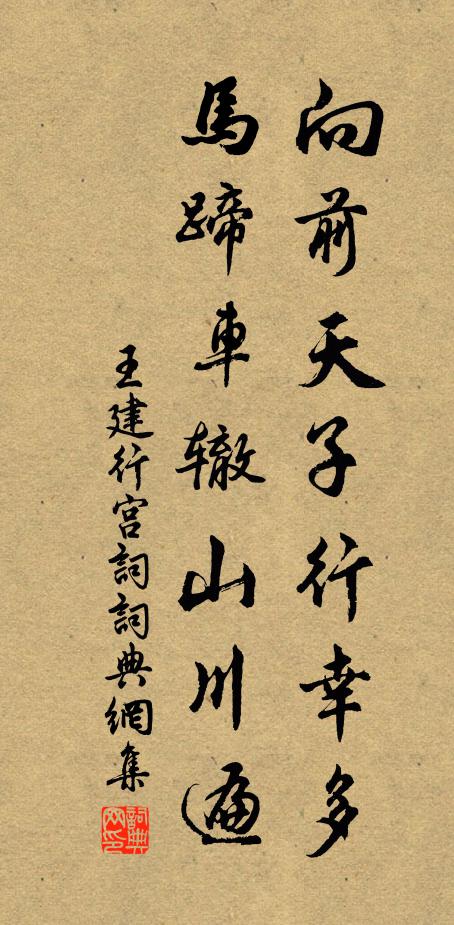 向前天子行幸多
馬蹄車辙山川遍
王建行宫詞詞典網集
詞典
网印